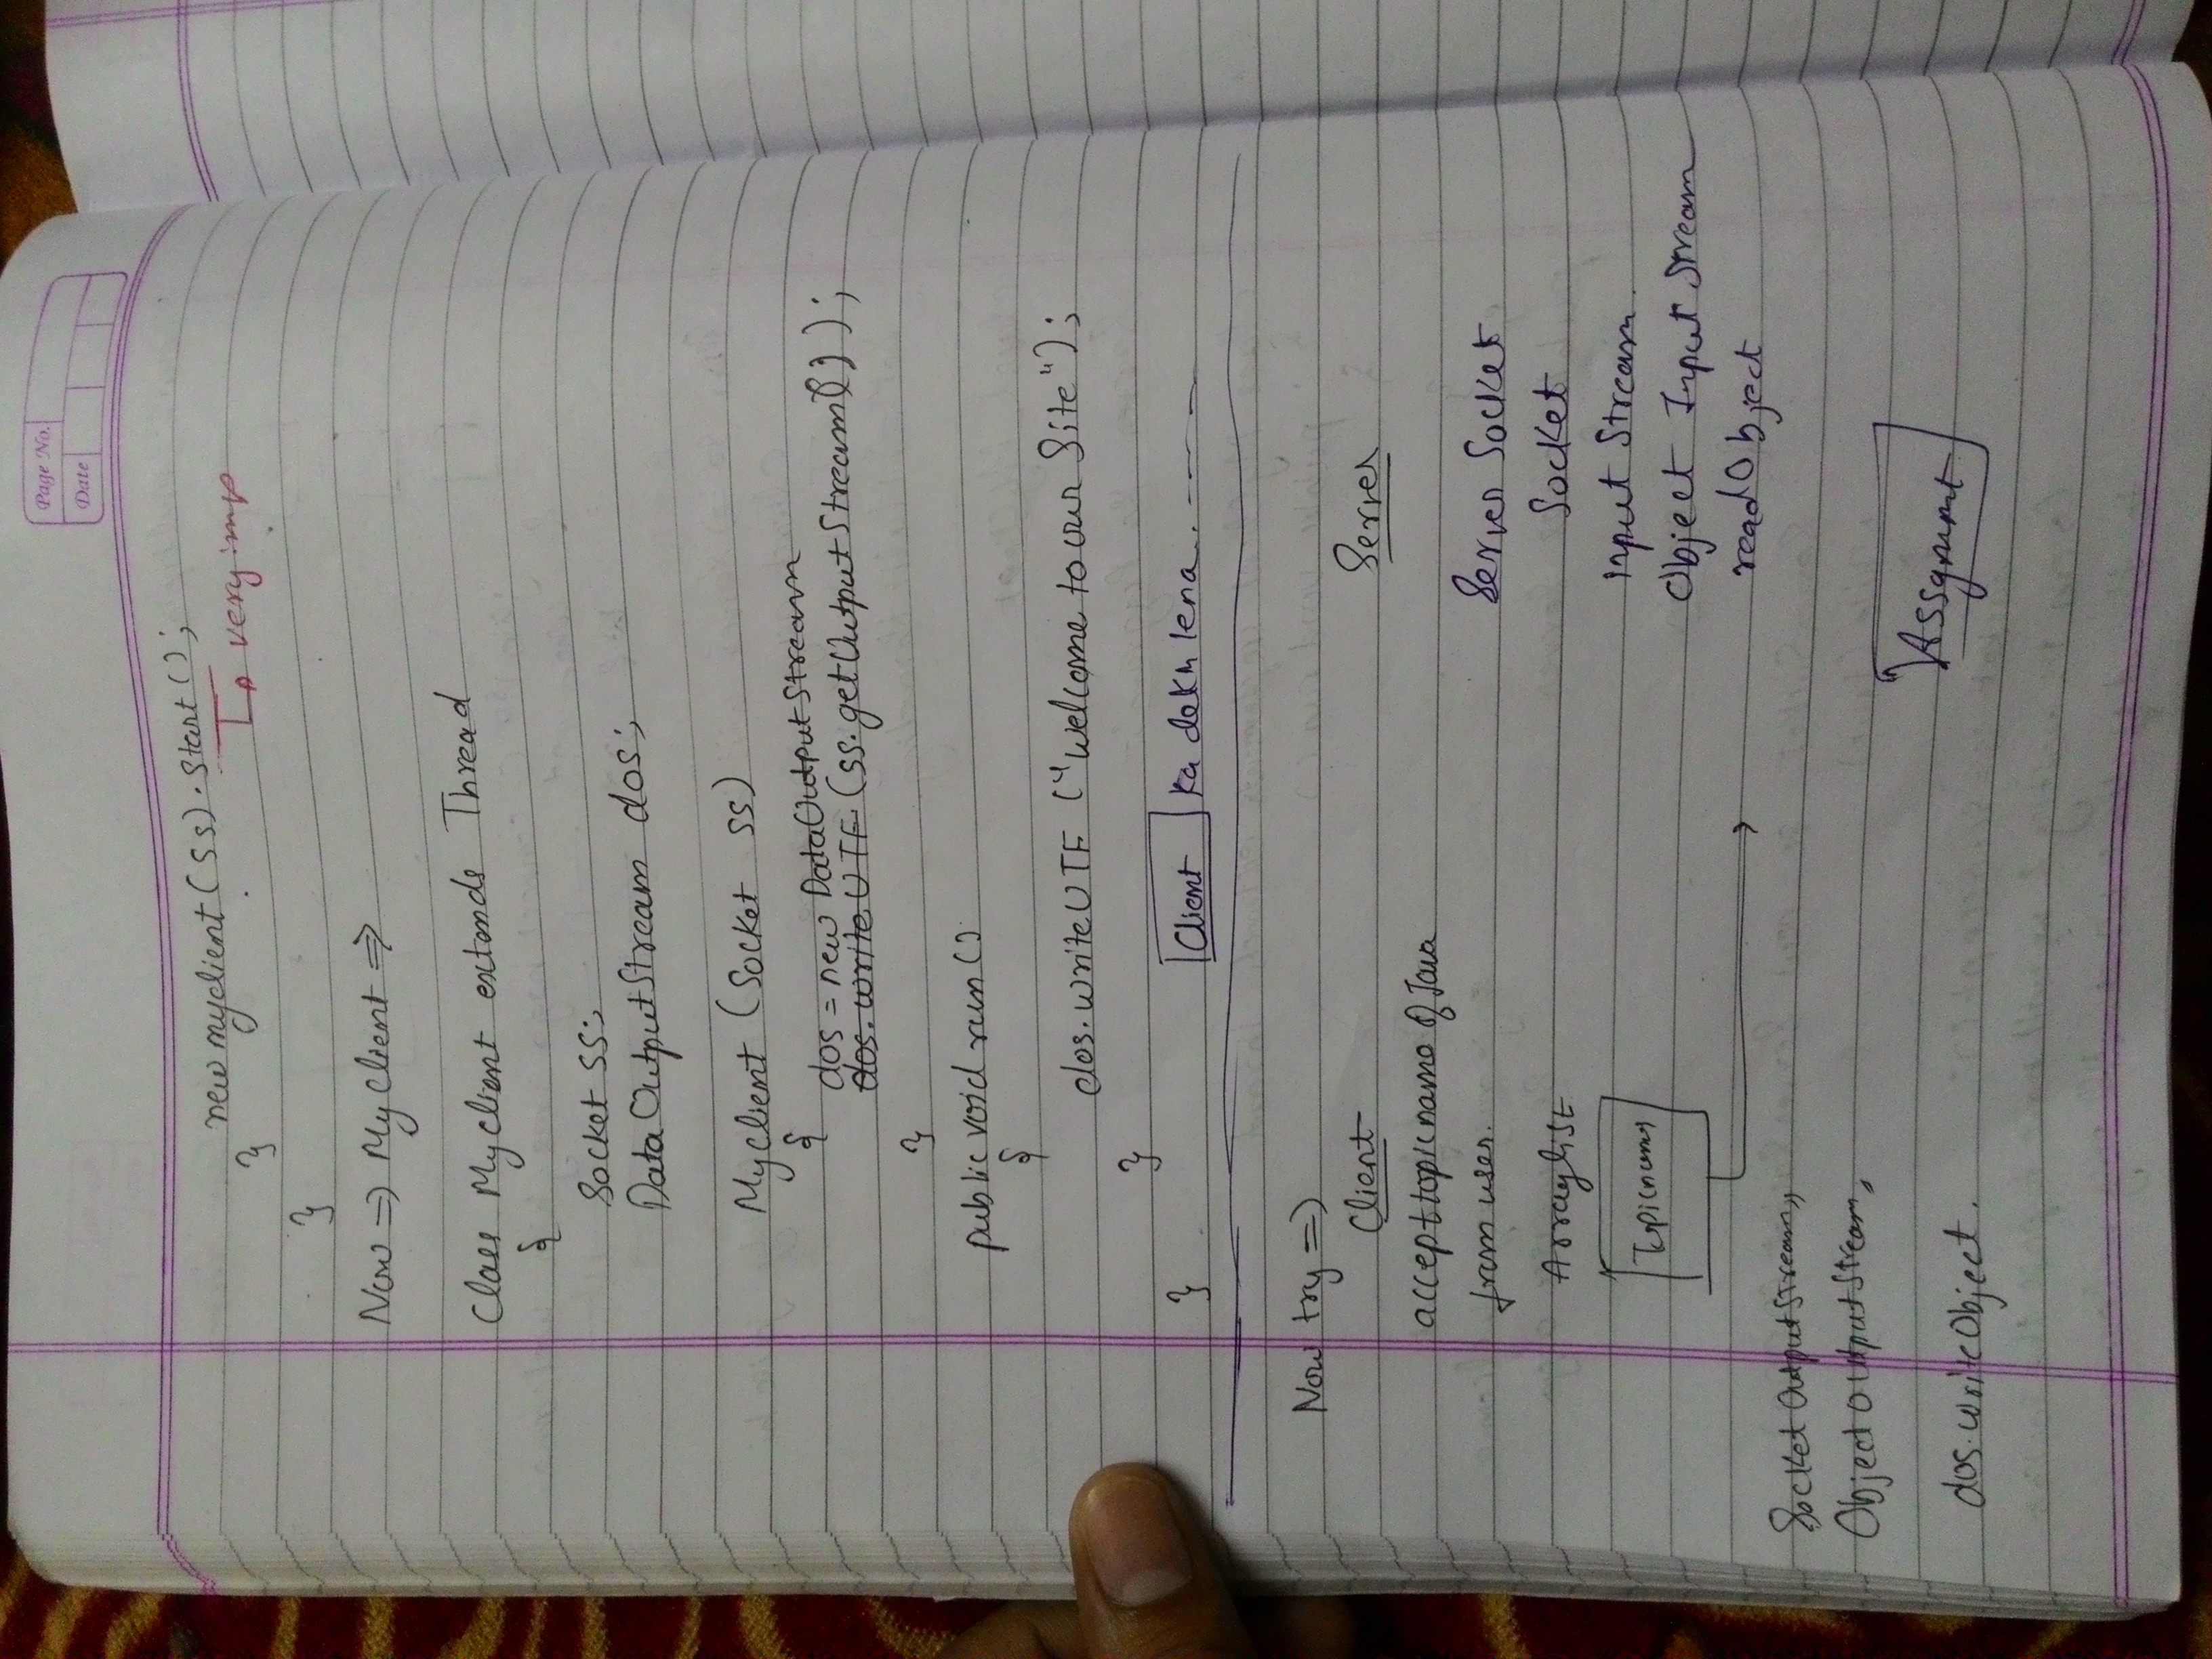 Page No.
Date
new myclient (ss).start();
very imp
}
}
Now => My client =>
Class Myclient extends Thread
{
Socket ss;
Data OutputStream dos;
Myclient (Socket ss)
{
dos = new DataOutputStream
dos.writeUTF (ss.getOutputStream());
}
public void run()
{
dos.writeUTF ("welcome to our Site");
}
}
Client ka dekh lena. ----
Now try =>
Client Server
accept topic name of Java
from user. Server Socket
Arraylist Socket
Topicnames Input Stream.
Object Input Stream
readObject
Socket OutputStream,
Object OutputStream,
Assgnmnt
dos.writeObject.